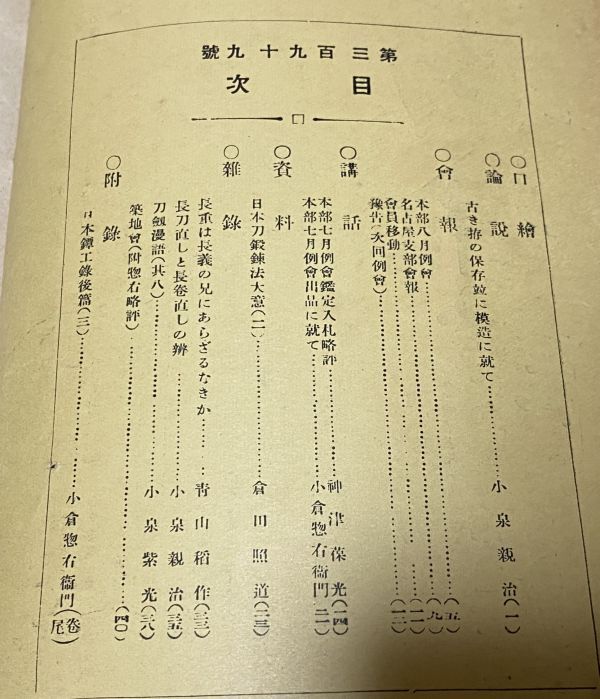 第三百九十九號
目次
〇口繪
〇論說
古き拵の保存竝に模造に就て……小泉親治(一)
〇會報
本部八月例會……(五)
名古屋支部會報……(九)
會員移動……(一一)
豫告(次回例會)……(一三)
〇講話
本部七月例會鑑定入札略評……神津葆光(一四)
本部七月例會出品に就て……小倉惣右衞門(二一)
〇資料
日本刀鍛鍊法大意(二)……倉田照道(二三)
〇雜錄
長重は長義の兄にあらざるなきか……靑山稻作(三三)
長刀直しと長卷直しの辨……小泉親治(三五)
刀劔漫語(其八)……小泉紫光(三八)
築地會(附惣右略評)……(四〇)
〇附錄
日本鐔工錄後篇(三)……小倉惣右衞門(卷尾)